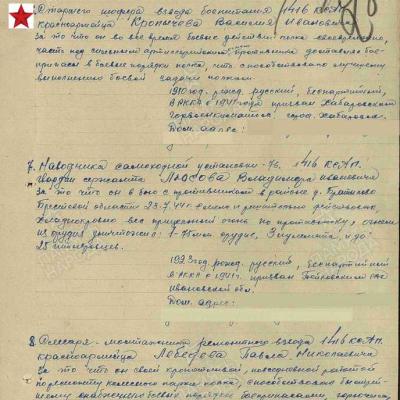 Старшего шофера взвода боепитания 1416 с.а.п.
красноармейца Кропычева Василия Ивановича
за то что он во время боевых действий полка своевременно,
часто под сильным артиллерийским доставлял бое-
припасы в боевые порядки полка, что способствовало лучшему
выполнению боевой задачи полком.
1910 год. рожд. русский, беспартийный,
в РККА с 1941 года призван Хабаровским
горвоенкоматом город Хабаровск.
Дом. адрес:
7. Наводчика самоходной установки-76. 1416 с.а.п.
гвардии сержанта Владимира Ивановича
за то что он в бою с противником в районе д.
Брестской области 23.7.44г. смело и решительно действовал
вел прицельный огонь по противнику, огнем
из орудия уничтожил: 1-75мм орудие, 3 пулемета и до
25 гитлеровцев.
1923 год. рожд. русский, беспартийный
в РККА с 1941г. призван РВК
Ивановской обл.
Дом. адрес:
8. Слесаря-монтажника ремонтного взвода 1416 с.а.п.
красноармейца Лебедева Павла Николаевича
за то что он своей кропотливой, повседневной работой
по ремонту колесного парка полка, способствовал
снабжению боевых порядков боеприпасами, горючим,